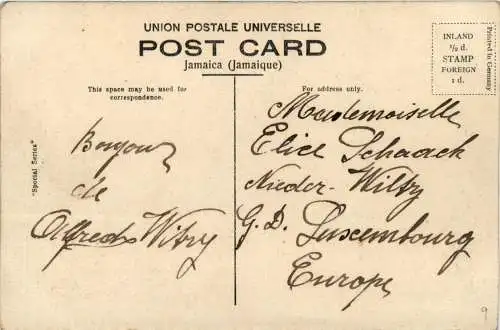 UNION POSTALE UNIVERSELLE
POST CARD
Jamaica (Jamaique)
INLAND
½ d.
STAMP
FOREIGN
1 d.
Printed in Germany
This space may be used for
correspondence.
For address only.
"Special Series"
Bonjour
de
Alfred Witry
Mademoiselle
Elise Schaack
Nieder-Wiltz
G. D. Luxembourg
Europe
9